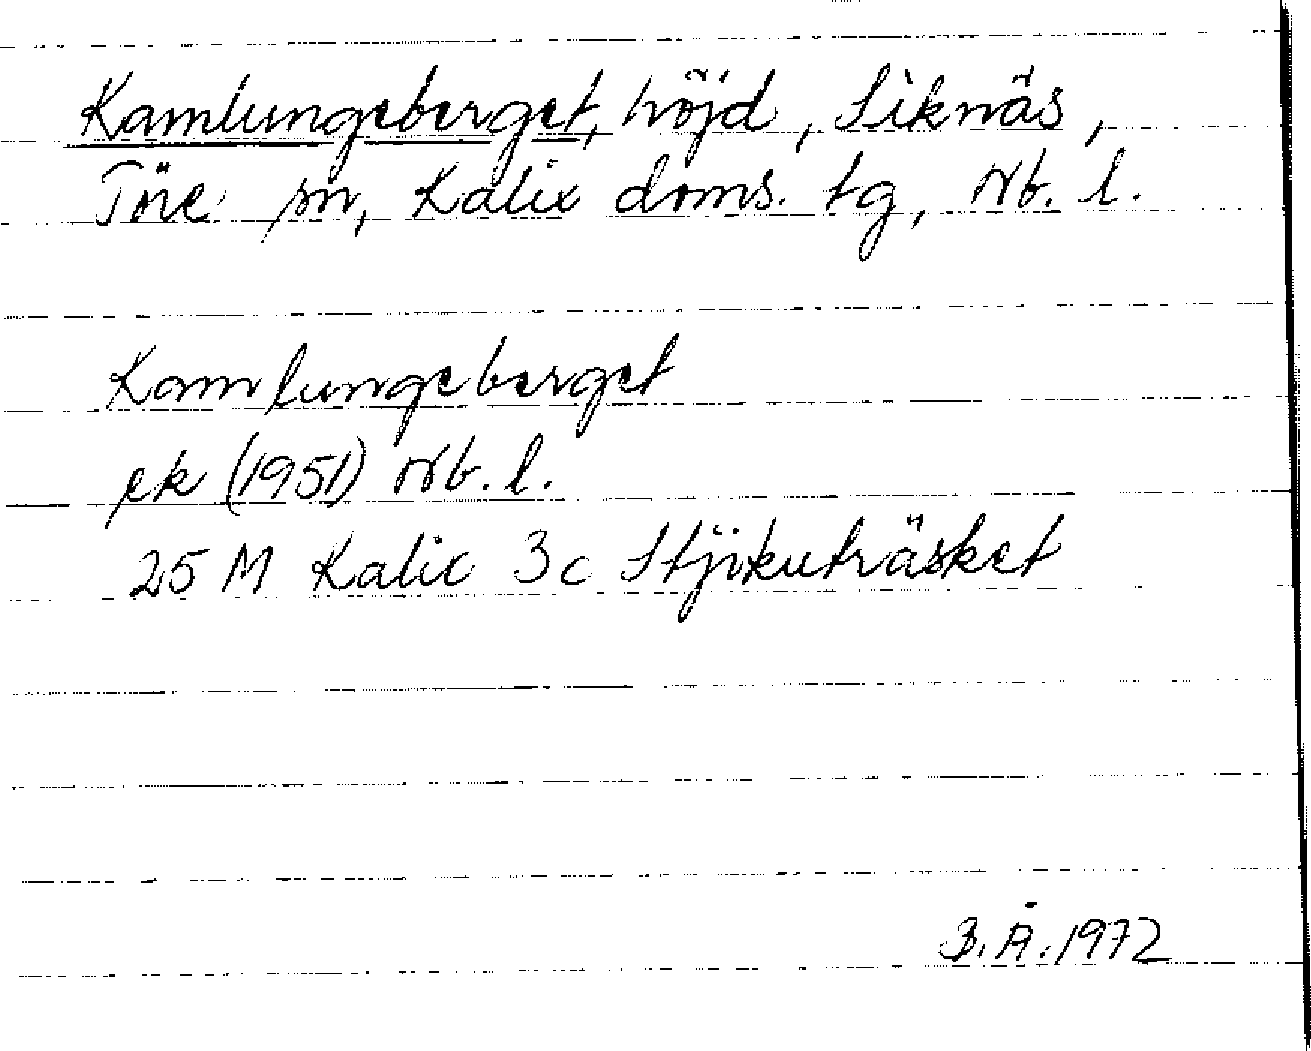 Kamlungeberget, höjd, Siknäs,
Töre sn, Kalix doms. tg, Nb. l.
Kamlungeberget
ek (1951) Nb. l.
25 M Kalix 3c Stjikuträsket
B.Å. 1972